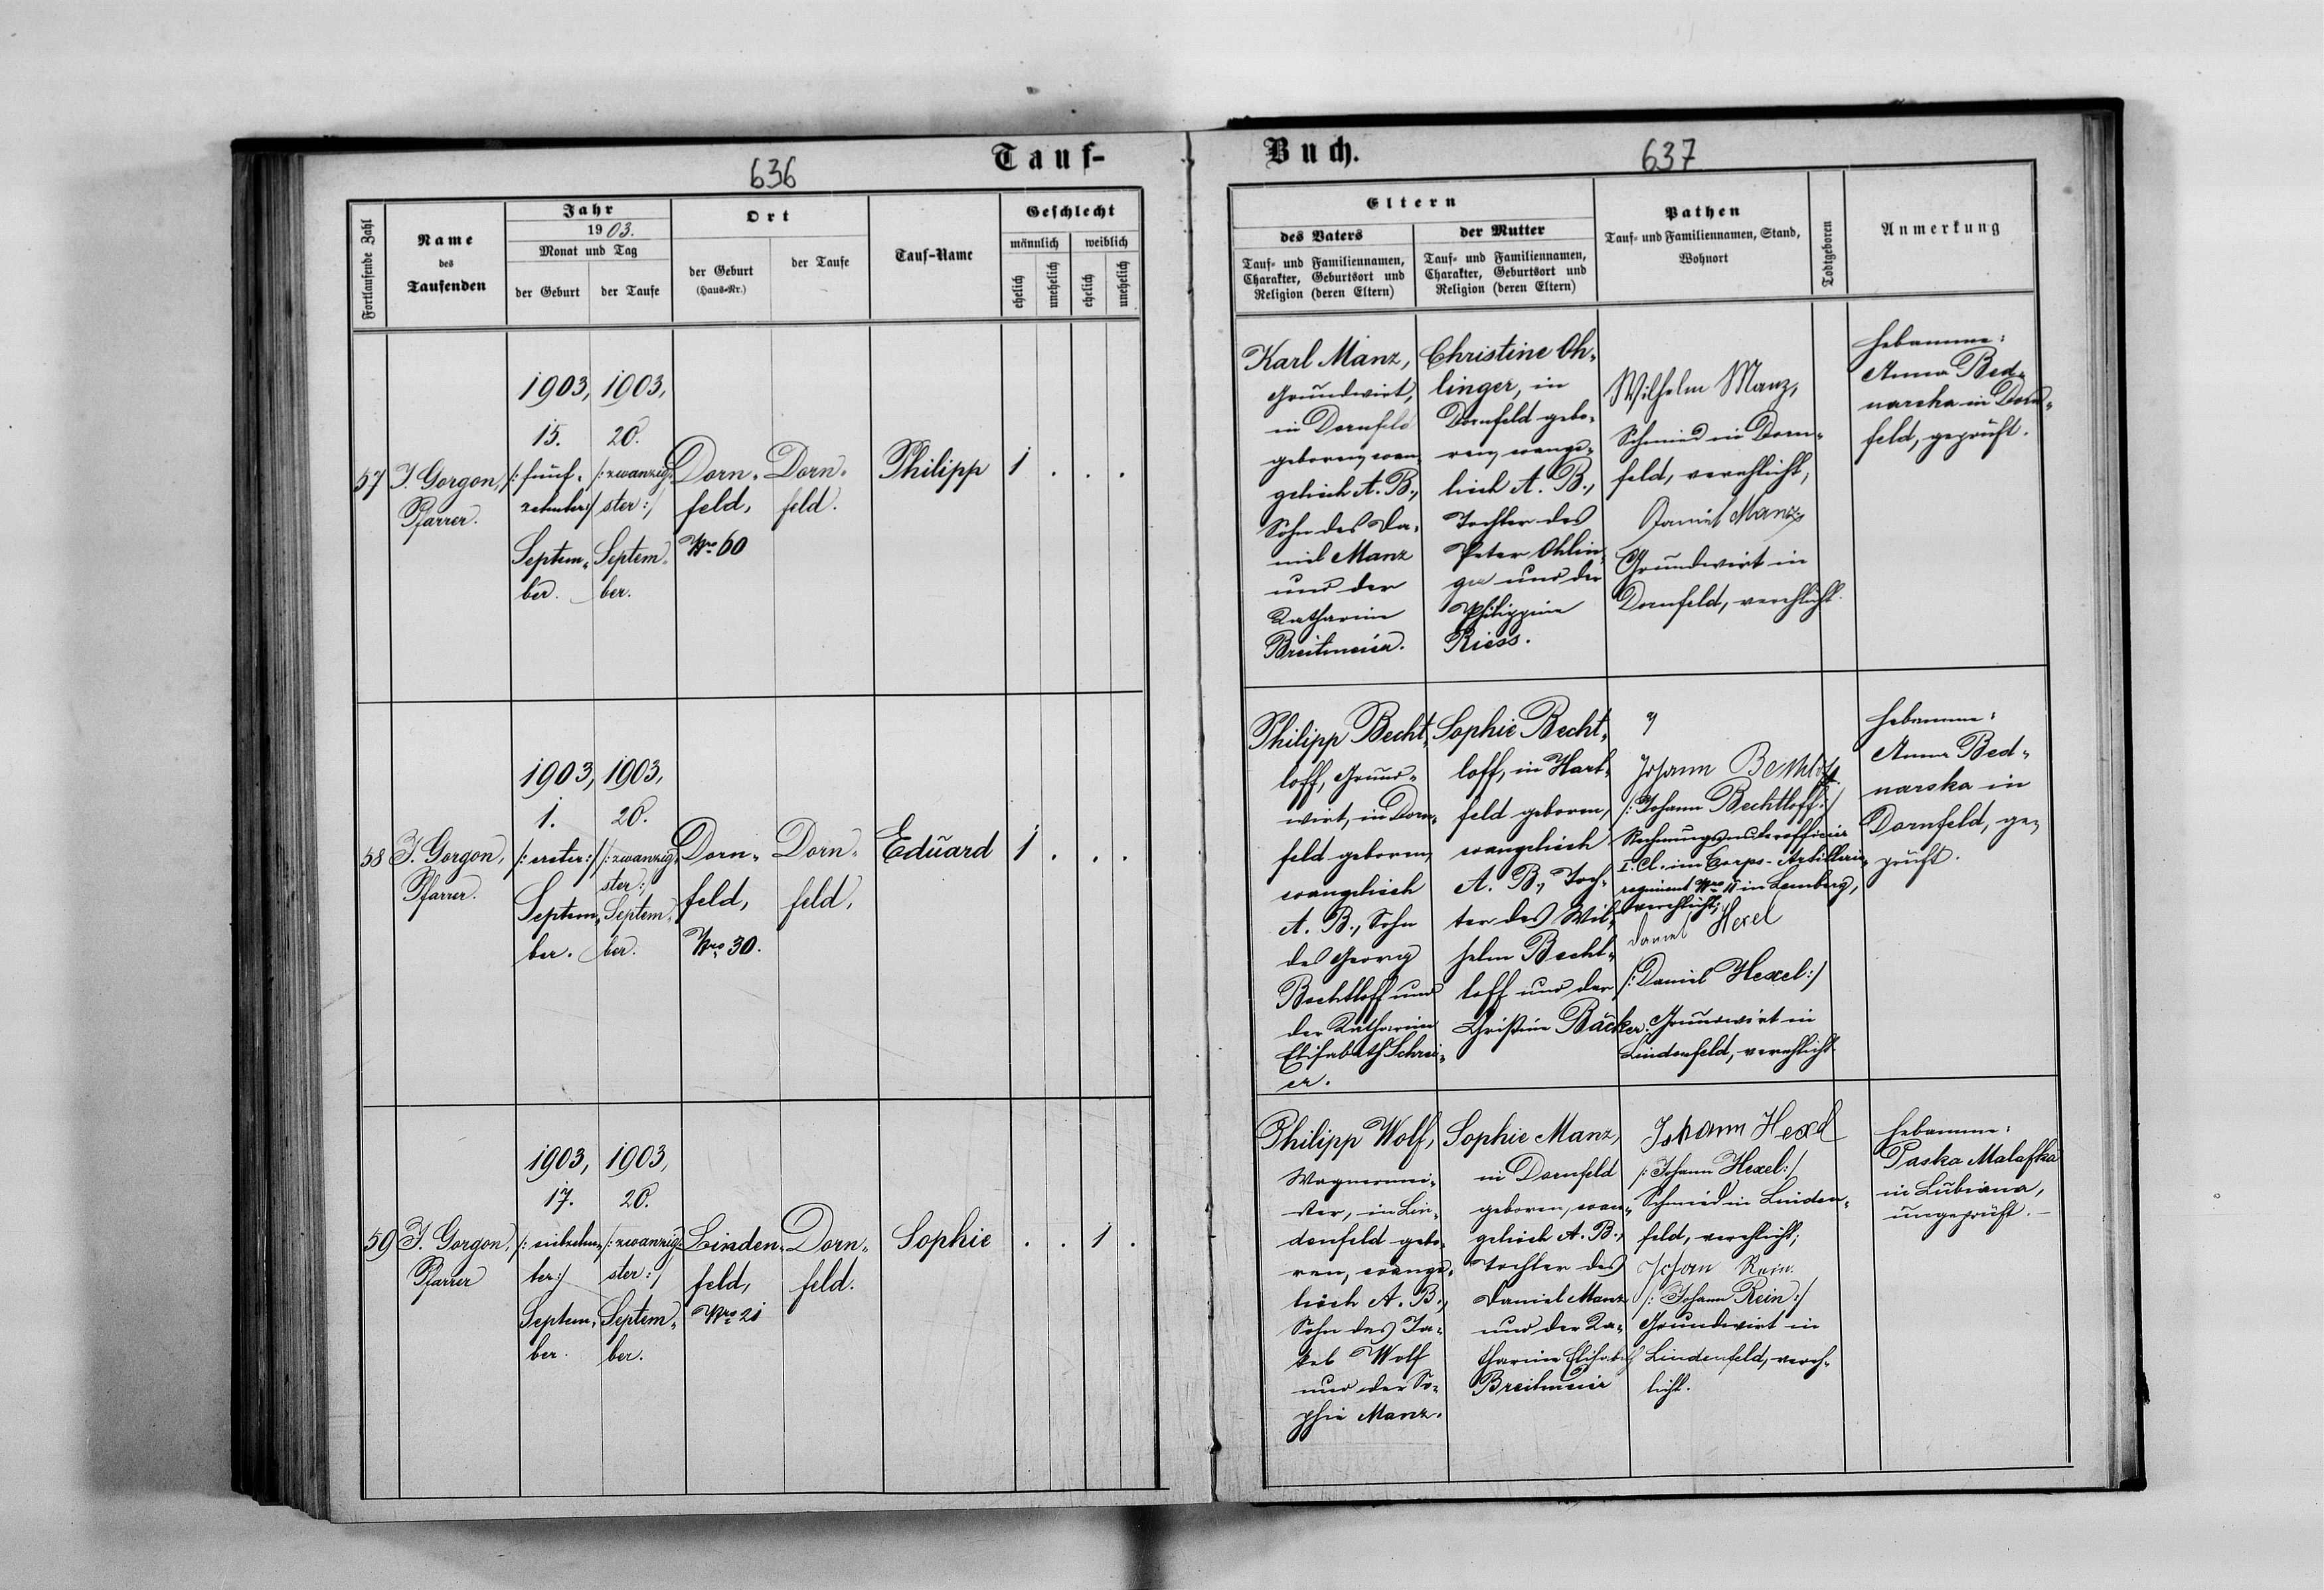 636
Tauf-
Fortlaufende Zahl
Name
des
Taufenden
Jahr
1903.
Monat und Tag
der Geburt
der Taufe
Ort
der Geburt
(Haus-Nr.)
der Taufe
Tauf-Name
Geschlecht
männlich
weiblich
ehelich
unehelich
ehelich
unehelich
57
J. Gorgon,
Pfarrer.
1903,
15.
/: fünf-
zehnter :/
Septem-
ber.
1903,
20.
/: zwanzig-
ster :/
Septem-
ber.
Dorn-
feld,
Nro 60
Dorn-
feld.
Philipp
1 . . .
58
J. Gorgon,
Pfarrer.
1903,
1.
/: erster :/
Septem-
ber.
1903,
20.
/: zwanzig-
ster :/
Septem-
ber.
Dorn-
feld,
Nro 30.
Dorn-
feld,
Eduard
1 . . .
59
J. Gorgon,
Pfarrer
1903,
17.
/: siebzehn-
ter :/
Septem-
ber.
1903,
20.
/: zwanzig-
ster :/
Septem-
ber.
Linden-
feld,
Nro 21
Dorn-
feld.
Sophie
. . 1 .
Buch.
637
Eltern
des Vaters
Tauf- und Familiennamen,
Charakter, Geburtsort und
Religion (deren Eltern)
der Mutter
Tauf- und Familiennamen,
Charakter, Geburtsort und
Religion (deren Eltern)
Pathen
Tauf- und Familiennamen, Stand,
Wohnort
Todtgeboren
Anmerkung
Karl Manz,
Grundwirt,
in Dornfeld
geboren, evan-
gelisch A. B.,
Sohn des Da-
niel Manz
und der
Katharine
Breitmeier.
Christine Oh-
linger, in
Dornfeld gebo-
ren, evange-
lisch A. B.,
Tochter des
Peter Ohlin-
ger und der
Philippine
Riess.
Wilhelm Manz,
Schmied in Dorn-
feld, verehlicht,
Daniel Manz
Grundwirt in
Dornfeld, verehlicht.
Hebamme:
Anna Bed-
narska in Dorn-
feld, geprüft.
Philipp Becht-
loff, Grund-
wirt, in Dorn-
feld geboren,
evangelisch
A. B., Sohn
des Georg
Bechtloff und
der Katharine
Elisabeth Schrei-
er.
Sophie Becht-
loff, in Hart-
feld geboren,
evangelisch
A. B., Toch-
ter des Wil-
helm Becht-
loff und der
Christine Bäcker.
Johann Bechtloff
/: Johann Bechtloff :/
Rechnungsunterofficier
I. Cl. im Corps-Artillerie-
regiment Nro 11 in Lemberg,
verehlicht;
Daniel Hexel
/: Daniel Hexel :/
Grundwirt in
Lindenfeld, verehlicht
Hebamme:
Anna Bed-
narska in
Dornfeld, ge-
prüft.
Philipp Wolf,
Wagnermei-
ster, in Lin-
denfeld gebo-
ren, evange-
lisch A. B.,
Sohn des Ja-
kob Wolf
und der So-
phie Manz.
Sophie Manz,
in Dornfeld
geboren, evan-
gelisch A. B.,
Tochter des
Daniel Manz
und der Ka-
tharine Elisabeth
Breitmeier
Johann Hexel
/: Johann Hexel :/
Schmied in Linden-
feld, verehlicht;
Johan Rein.
/: Johann Rein :/
Grundwirt in
Lindenfeld, vereh-
licht.
Hebamme:
Paska Malafka
in Lubiana,
ungeprüft.